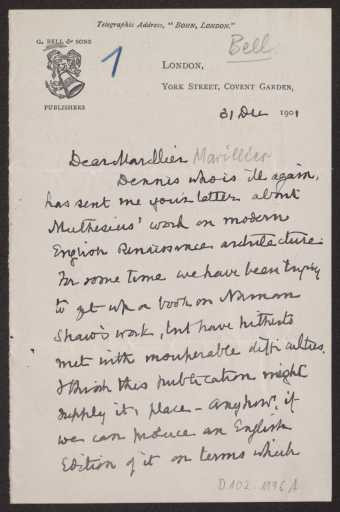 Telegraphic Address, "BOHN, LONDON."
G. BELL & SONS
PUBLISHERS
1
Bell
LONDON,
YORK STREET, COVENT GARDEN,
31 Dec 1901
Dear Marillier Marillier
Dennis who is ill again,
has sent me your letter about
Muthesius' work on modern
English Renaissance architecture.
For some time we have been trying
to get up a book on Norman
Shaw's work, but have hitherto
met with insuperable difficulties.
I think this publication might
supply its place - Anyhow, if
we can produce an English
Edition of it on terms which
D102-1996 A